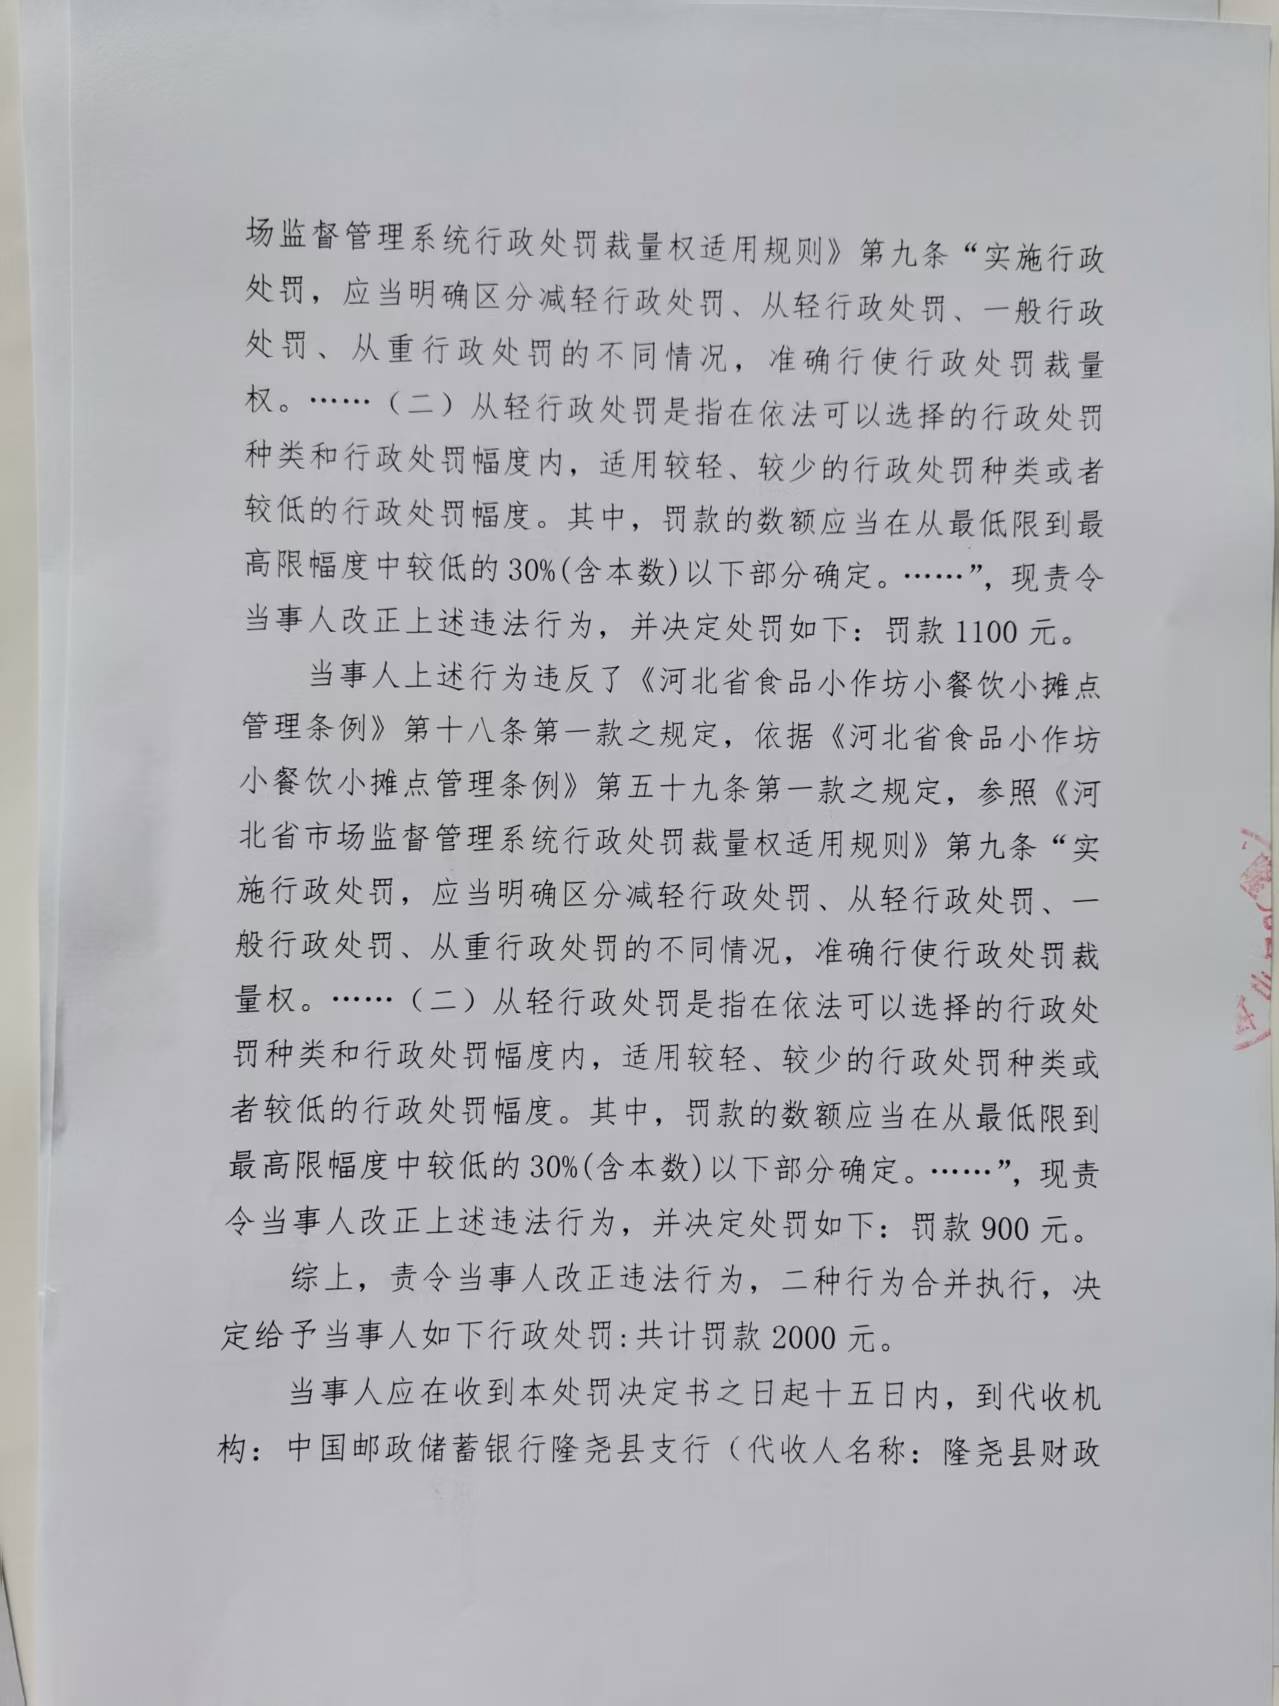 场监督管理系统行政处罚裁量权适用规则》第九条“实施行政
处罚，应当明确区分减轻行政处罚、从轻行政处罚、一般行政
处罚、从重行政处罚的不同情况，准确行使行政处罚裁量
权。……（二）从轻行政处罚是指在依法可以选择的行政处罚
种类和行政处罚幅度内，适用较轻、较少的行政处罚种类或者
较低的行政处罚幅度。其中，罚款的数额应当在从最低限到最
高限幅度中较低的30%(含本数)以下部分确定。……”，现责令
当事人改正上述违法行为，并决定处罚如下：罚款1100元。
当事人上述行为违反了《河北省食品小作坊小餐饮小摊点
管理条例》第十八条第一款之规定，依据《河北省食品小作坊
小餐饮小摊点管理条例》第五十九条第一款之规定，参照《河
北省市场监督管理系统行政处罚裁量权适用规则》第九条“实
施行政处罚，应当明确区分减轻行政处罚、从轻行政处罚、一
般行政处罚、从重行政处罚的不同情况，准确行使行政处罚裁
量权。……（二）从轻行政处罚是指在依法可以选择的行政处
罚种类和行政处罚幅度内，适用较轻、较少的行政处罚种类或
者较低的行政处罚幅度。其中，罚款的数额应当在从最低限到
最高限幅度中较低的30%(含本数)以下部分确定。……”，现责
令当事人改正上述违法行为，并决定处罚如下：罚款900元。
综上，责令当事人改正违法行为，二种行为合并执行，决
定给予当事人如下行政处罚:共计罚款2000元。
当事人应在收到本处罚决定书之日起十五日内，到代收机
构：中国邮政储蓄银行隆尧县支行（代收人名称：隆尧县财政